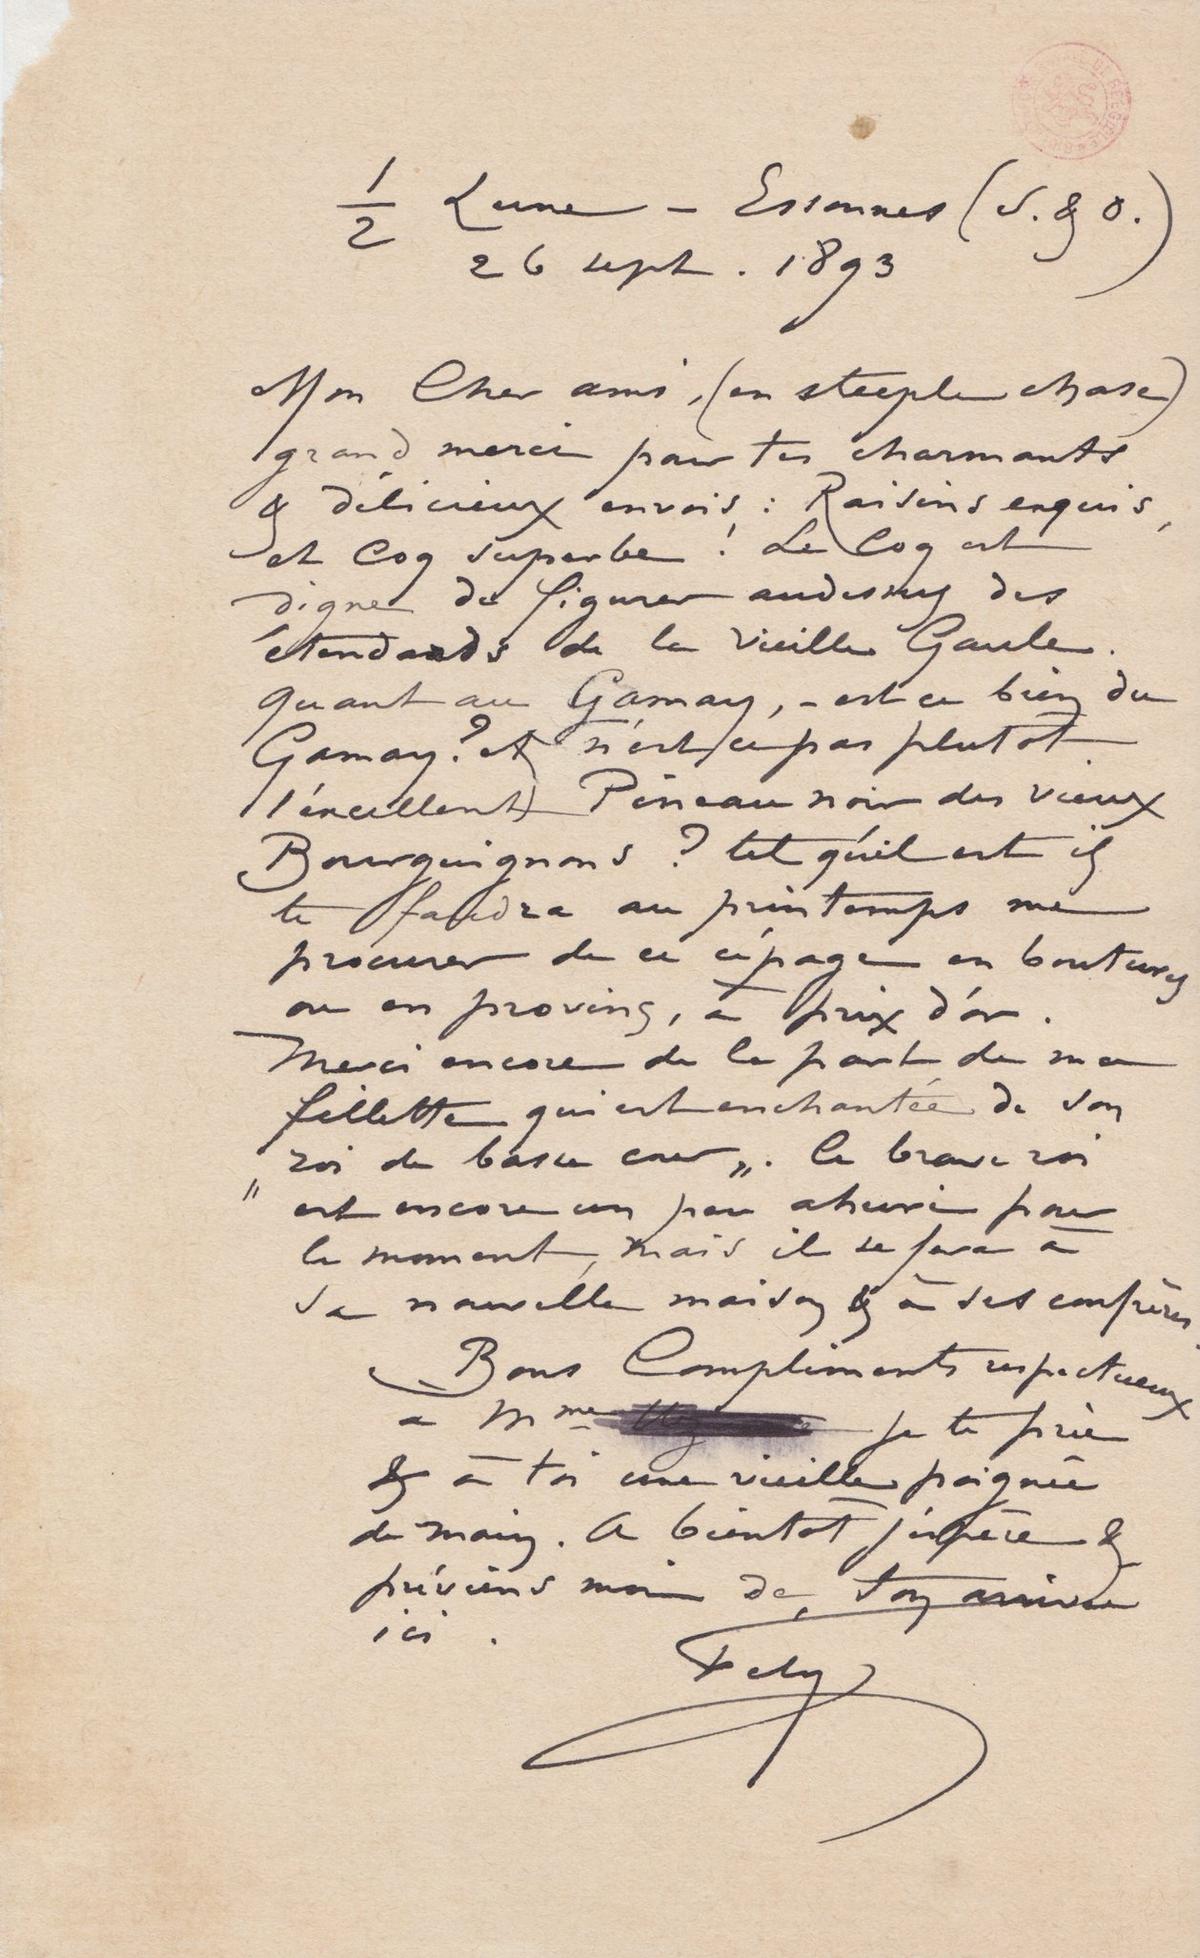 1/2 Lune – Essonnes (S. & O.)
26 sept. 1893
Mon Cher ami, (en steeple chase)
grand merci pour tes charmants
& délicieux envois : Raisins exquis,
et Coq superbe ! Le Coq est
digne de figurer audessus des
étendards de la vieille Gaule.
Quant au Gamay, – est ce bien du
Gamay ? et n'est ce pas plutot
l'éxcellent Pineau noir des vieux
Bourguignons ? tel qu'il est il
te faudra au printemps me
procurer de ce cépage en boutures
ou en provins, à prix d'or.
Merci encore de la part de ma
fillette qui est enchantée de son
"roi de basse cour". Ce brave roi
est encore un peu ahuri pour
le moment, mais il se fera à
sa nouvelle maison & à ses confrères
Bons Compliments respectueux
a Mme je te prie
& à toi une vieille poignée
de main. A bientôt j'espère &
préviens moi de ton arrivée
ici.
Fély